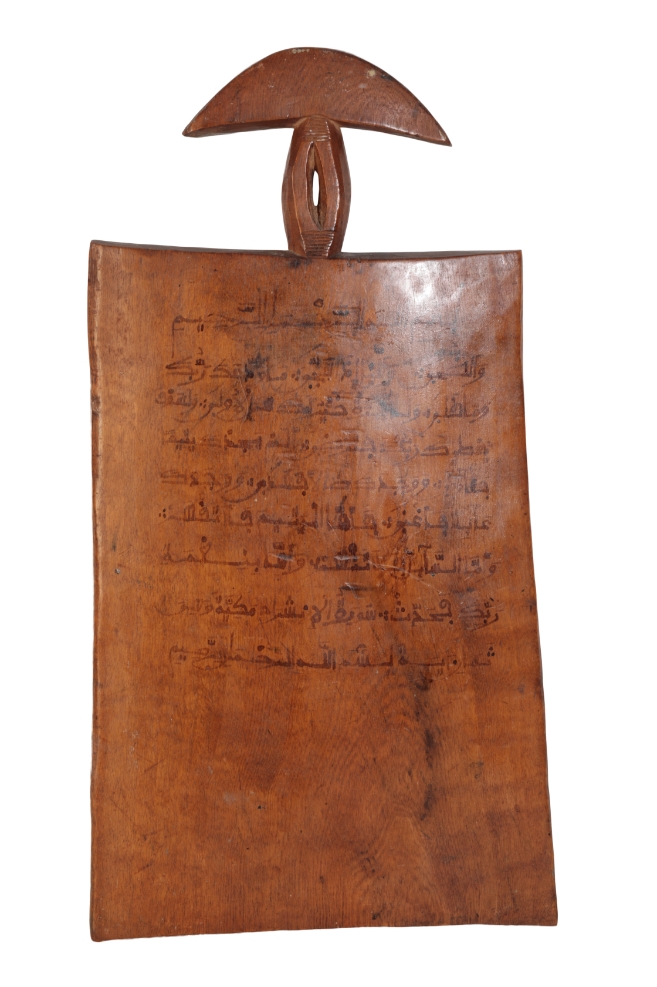 بسم الله الرحمن الرحيم
والضحى واليل إذا سجى ما ودعك ربك
وما قلى وللآخرة خير لك من الأولى ولسوف
يعطيك ربك فترضى ألم يجدك يتيما
فآوى ووجدك ضالا فهدى ووجدك
عائلا فأغنى فأما اليتيم فلا تقهر
وأما السآئل فلا تنهر وأما بنعمة
ربك فحدث سورة الانشراح مكية وهي
ثمانية بسم الله الرحمن الرحيم